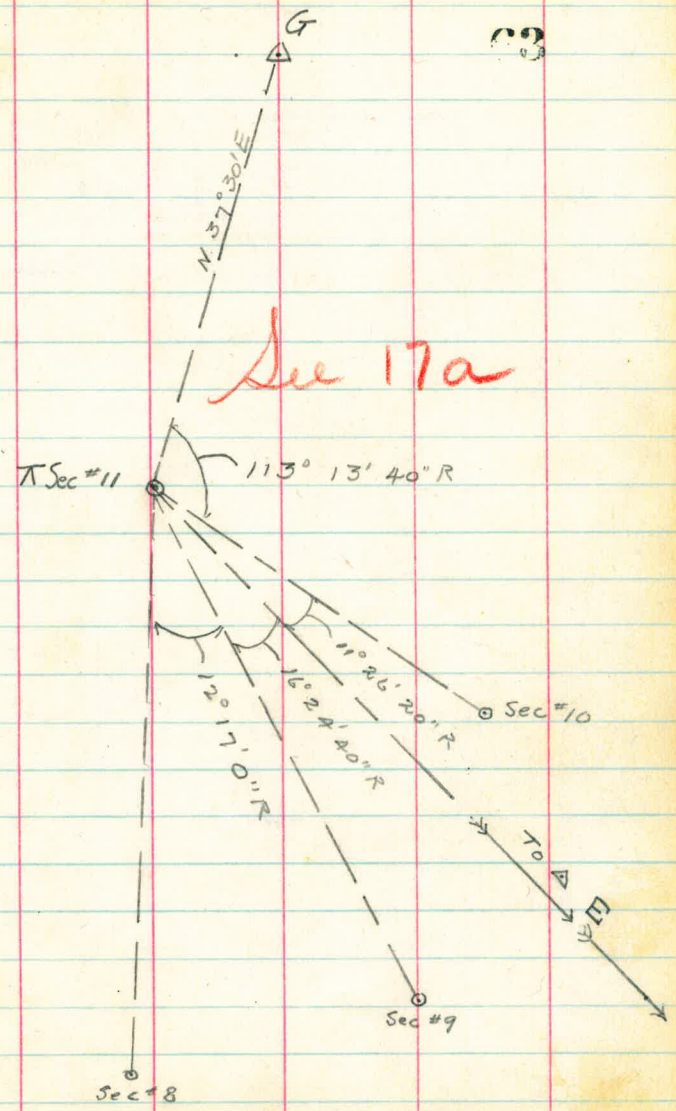 G
63
N. 37° 30' E
See 17a
⊼ Sec #11
113° 13' 40" R
11° 26' 20" R
16° 24' 40" R
12° 17' 0" R
Sec #10
To △ E
Sec #9
Sec #8